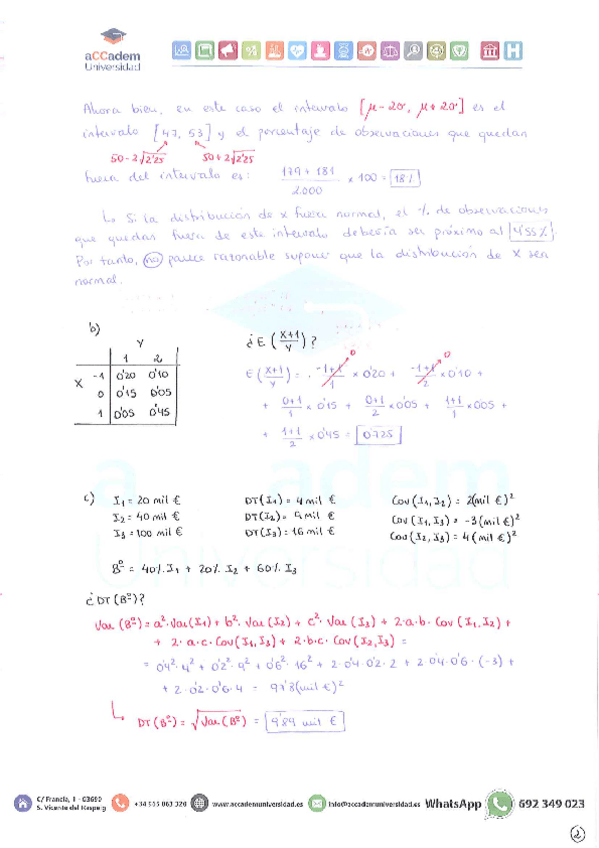 aCCadem
Universidad
Ahora bien, en este caso el intervalo [μ-2σ, μ+2σ] es el
intervalo [47, 53] y el porcentaje de observaciones que quedan
50-2√2'25 50+2√2'25
fuera del intervalo es: (179+181)/2.000 x 100 = 18%
↳ Si la distribución de x fuera normal, el % de observaciones
que quedan fuera de este intervalo debería ser próximo al 4'55%
Por tanto, no parece razonable suponer que la distribución de X sea
normal.
b)
Y
1 2
X -1 0'20 0'10
0 0'15 0'05
1 0'05 0'45
¿E((X+1)/Y)?
E((X+1)/Y) = (-1+1)/1 x 0'20 + (-1+1)/2 x 0'10 +
+ (0+1)/1 x 0'15 + (0+1)/2 x 0'05 + (1+1)/1 x 0'05 +
+ (1+1)/2 x 0'45 = 0'725
a cadem
Universidad
c) I1 = 20 mil € DT(I1) = 4 mil € Cov(I1,I2) = 2(mil €)²
I2 = 40 mil € DT(I2) = mil € Cov(I1,I3) = -3(mil €)²
I3 = 100 mil € DT(I3) = 16 mil € Cov(I2,I3) = 4(mil €)²
Bº = 40%.I1 + 20%.I2 + 60%.I3
¿DT(Bº)?
Var(Bº) = a²·Var(I1) + b²·Var(I2) + c²·Var(I3) + 2·a·b·Cov(I1,I2) +
+ 2·a·c·Cov(I1,I3) + 2·b·c·Cov(I2,I3) =
= 0'4²·4² + 0'2²·9² + 0'6²·16² + 2·0'4·0'2·2 + 2·0'4·0'6·(-3) +
+ 2·0'2·0'6·4 = (mil €)²
↳ DT(Bº) = √Var(Bº) = 9'89 mil €
C/ Francia, 1 - 03690
S. Vicente del Raspeig
+34 965 063 320
www.accademuniversidad.es
info@accademuniversidad.es
WhatsApp
692 349 023
2